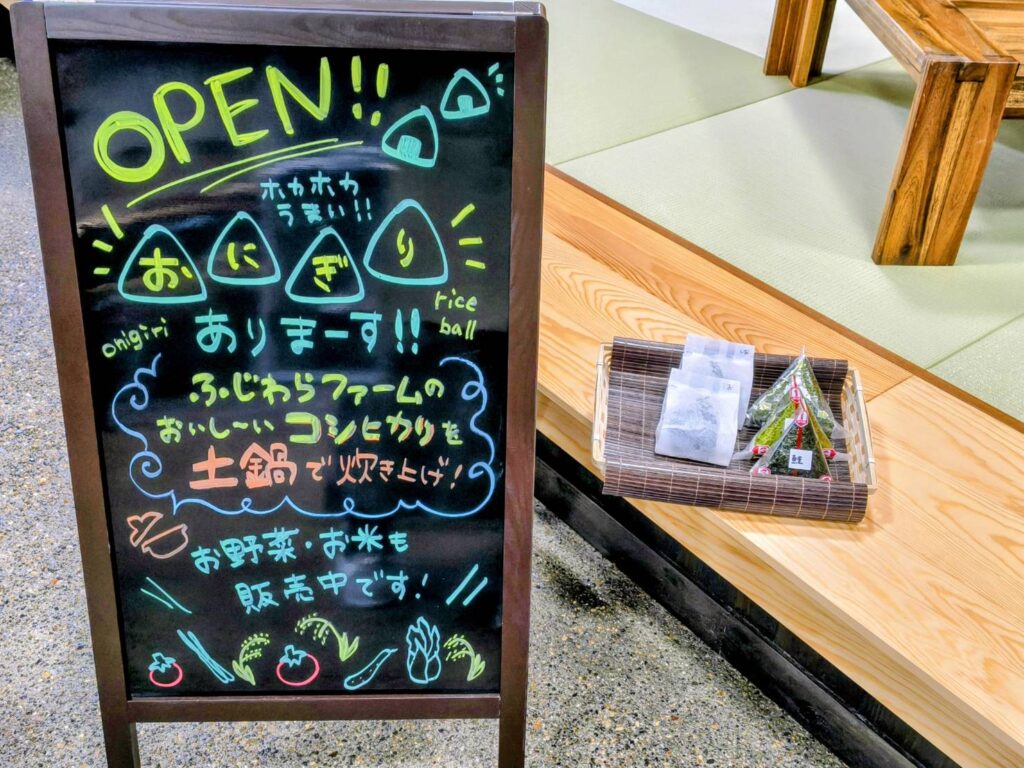 OPEN!!
ホカホカ
うまい!!
おにぎり
onigiri
rice
ball
ありまーす!!
ふじわらファームの
おいし〜い コシヒカリを
土鍋で炊き上げ!
お野菜・お米も
販売中です!
鮭